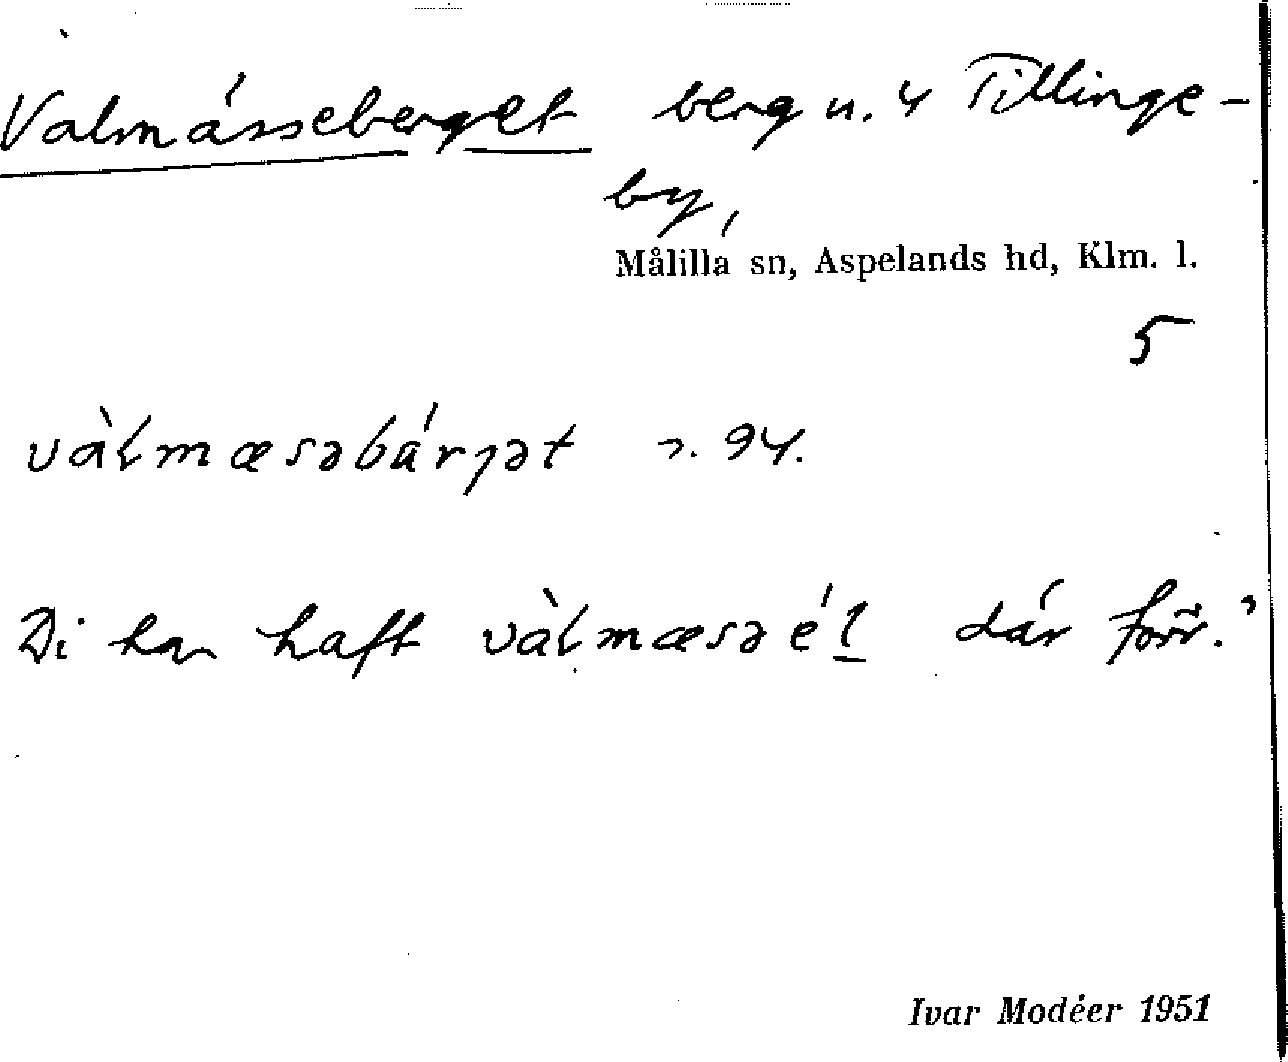 Valmásseberget berg n. 4 Tillinge-
by,
Målilla sn, Aspelands hd, Klm. l.
5
vàlmæsəbárjət n. 94.
Di har haft vàlmæsəél där förr."
Ivar Modéer 1951